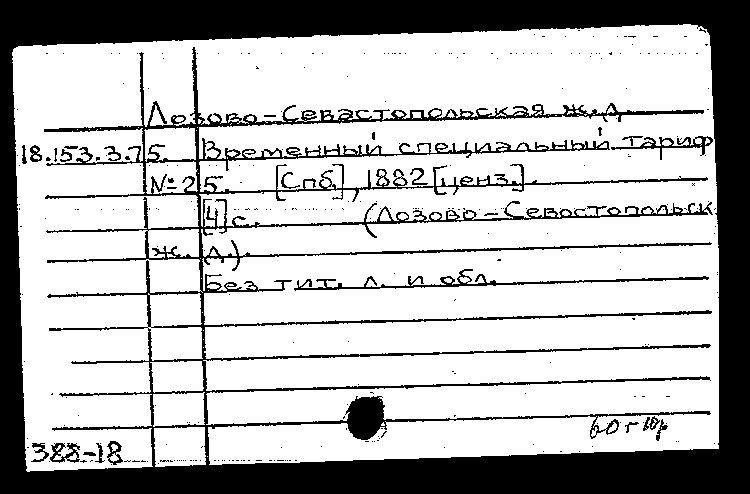 Лозово-Севастопольская ж.д.
18.153.3.75. Временный специальный тариф
№ 25. [Спб], 1882 [ценз.].
[4] с. (Лозово-Севостопольск
ж. д.).
Без тит. л. и обл.
388-18